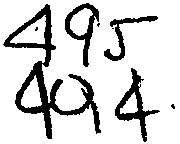 495
40,4.